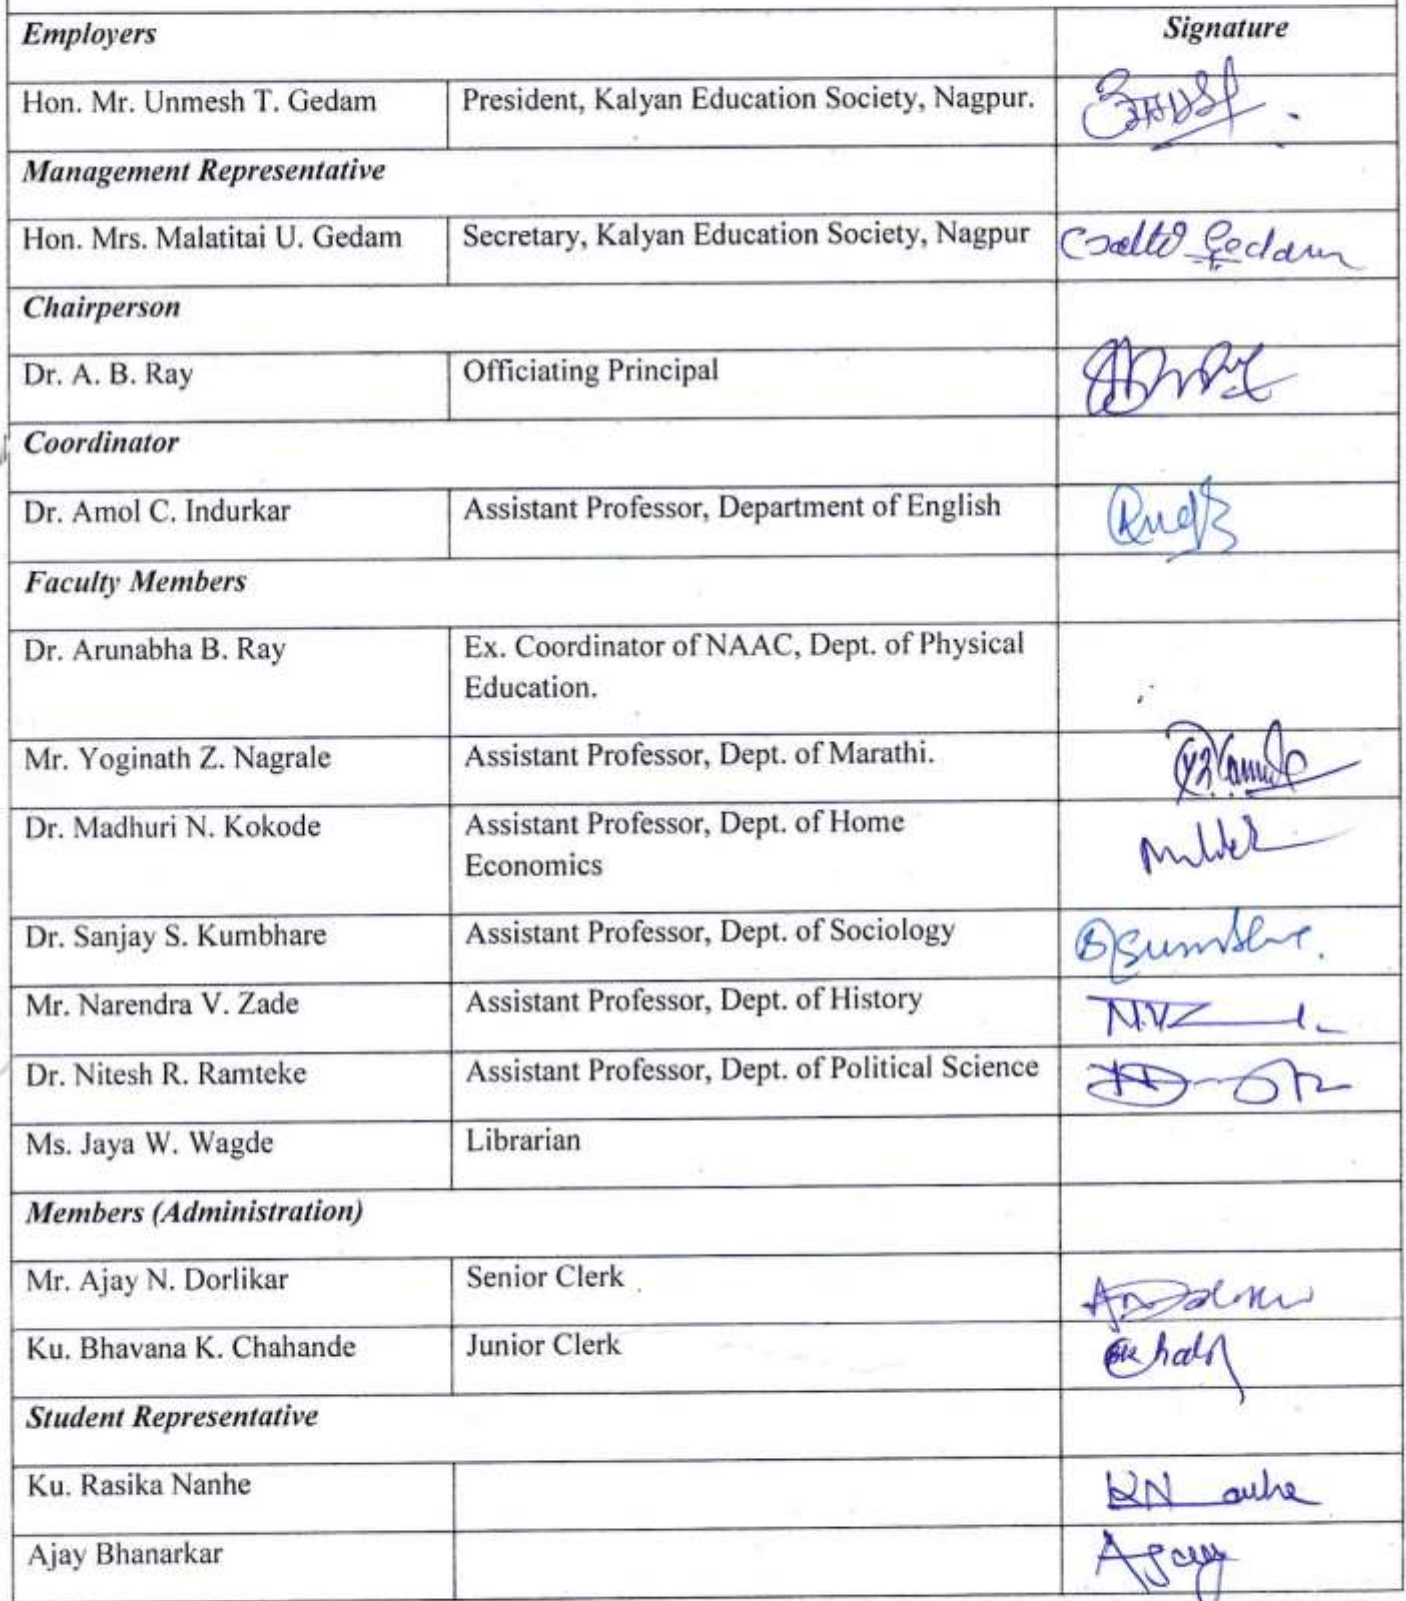 Employers Signature
Hon. Mr. Unmesh T. Gedam President, Kalyan Education Society, Nagpur.
Management Representative
Hon. Mrs. Malatitai U. Gedam Secretary, Kalyan Education Society, Nagpur Gedam
Chairperson
Dr. A. B. Ray Officiating Principal
Coordinator
Dr. Amol C. Indurkar Assistant Professor, Department of English
Faculty Members
Dr. Arunabha B. Ray Ex. Coordinator of NAAC, Dept. of Physical
Education.
Mr. Yoginath Z. Nagrale Assistant Professor, Dept. of Marathi.
Dr. Madhuri N. Kokode Assistant Professor, Dept. of Home
Economics
Dr. Sanjay S. Kumbhare Assistant Professor, Dept. of Sociology
Mr. Narendra V. Zade Assistant Professor, Dept. of History N.VZ
Dr. Nitesh R. Ramteke Assistant Professor, Dept. of Political Science
Ms. Jaya W. Wagde Librarian
Members (Administration)
Mr. Ajay N. Dorlikar Senior Clerk
Ku. Bhavana K. Chahande Junior Clerk
Student Representative
Ku. Rasika Nanhe
Ajay Bhanarkar Ajay